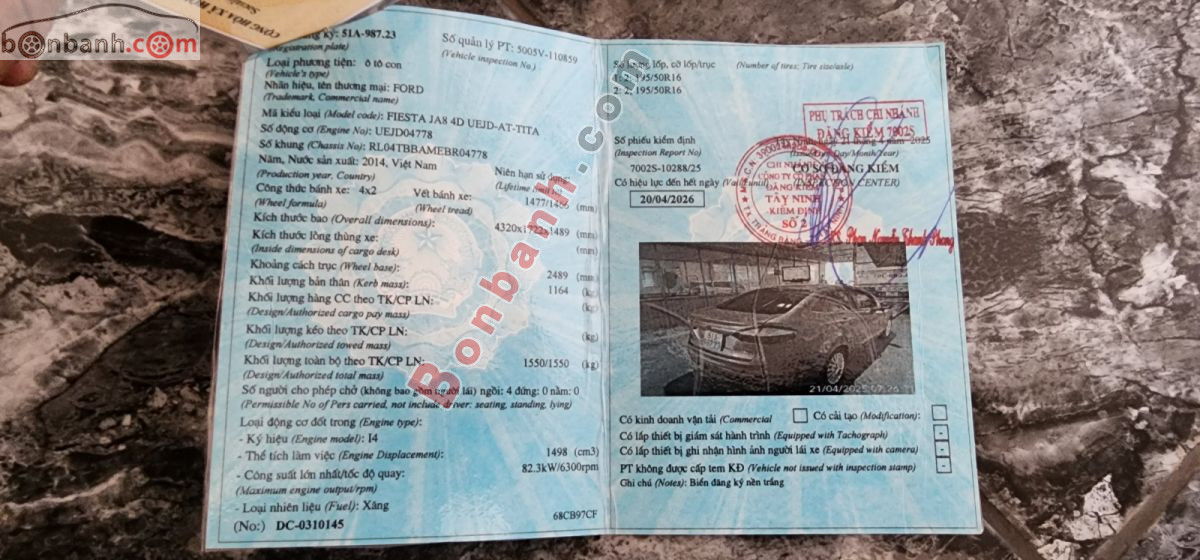 bonbanh.com
CỘNG HÒA XÃ HỘI
ký: 51A-987.23
(Registration plate)
Số quản lý PT: 5005V-110859
(Vehicle inspection No.)
Loại phương tiện: ô tô con
(Vehicle's type)
Nhãn hiệu, tên thương mại: FORD
(Trademark, Commercial name)
Mã kiểu loại (Model code): FIESTA JA8 4D UEJD-AT-TITA
Số động cơ (Engine No): UEJD04778
Số khung (Chassis No): RL04TBBAMEBR04778
Năm, Nước sản xuất: 2014, Việt Nam
(Production year, Country)
Niên hạn sử dụng:
(Lifetime
Công thức bánh xe: 4x2
(Wheel formula)
Vết bánh xe: 1477/1466 (mm)
(Wheel tread)
Kích thước bao (Overall dimensions): 4320x1722x1489 (mm)
Kích thước lòng thùng xe: (mm)
(Inside dimensions of cargo desk)
Khoảng cách trục (Wheel base): 2489 (mm)
Khối lượng bản thân (Kerb mass): 1164 (kg)
Khối lượng hàng CC theo TK/CP LN: (kg)
(Design/Authorized cargo pay mass)
Khối lượng kéo theo TK/CP LN: (kg)
(Design/Authorized towed mass)
Khối lượng toàn bộ theo TK/CP LN: 1550/1550 (kg)
(Design/Authorized total mass)
Số người cho phép chở (không bao gồm người lái) ngồi: 4 đứng: 0 nằm: 0
(Permissible No of Pers carried, not include driver: seating, standing, lying)
Loại động cơ đốt trong (Engine type):
- Ký hiệu (Engine model): I4
- Thể tích làm việc (Engine Displacement): 1498 (cm3)
- Công suất lớn nhất/tốc độ quay: 82.3kW/6300rpm
(Maximum engine output/rpm)
- Loại nhiên liệu (Fuel): Xăng
(No:) DC-0310145
68CB97CF
Bonbanh.com
Số lượng lốp, cỡ lốp/trục (Number of tires; Tire size/axle)
1: 2; 195/50R16
2: 2; 195/50R16
PHỤ TRÁCH CHI NHÁNH
ĐĂNG KIỂM 7002S
Số phiếu kiểm định
(Inspection Report No)
7002S-10288/25
21 tháng 4 năm 2025
Day/Month/Year)
CƠ SỞ ĐĂNG KIỂM
(INSPECTION CENTER)
Có hiệu lực đến hết ngày (Valid until)
20/04/2026
CHI NHÁNH
CÔNG TY CỔ PHẦN
ĐĂNG KIỂM
TÂY NINH
KIỂM ĐỊNH
SỐ 2
Phan Nguyễn Thanh Phong
21/04/2025 07:26
Có kinh doanh vận tải (Commercial
Có cải tạo (Modification):
Có lắp thiết bị giám sát hành trình (Equipped with Tachograph) -
Có lắp thiết bị ghi nhận hình ảnh người lái xe (Equipped with camera) -
PT không được cấp tem KĐ (Vehicle not issued with inspection stamp) -
Ghi chú (Notes): Biển đăng ký nền trắng